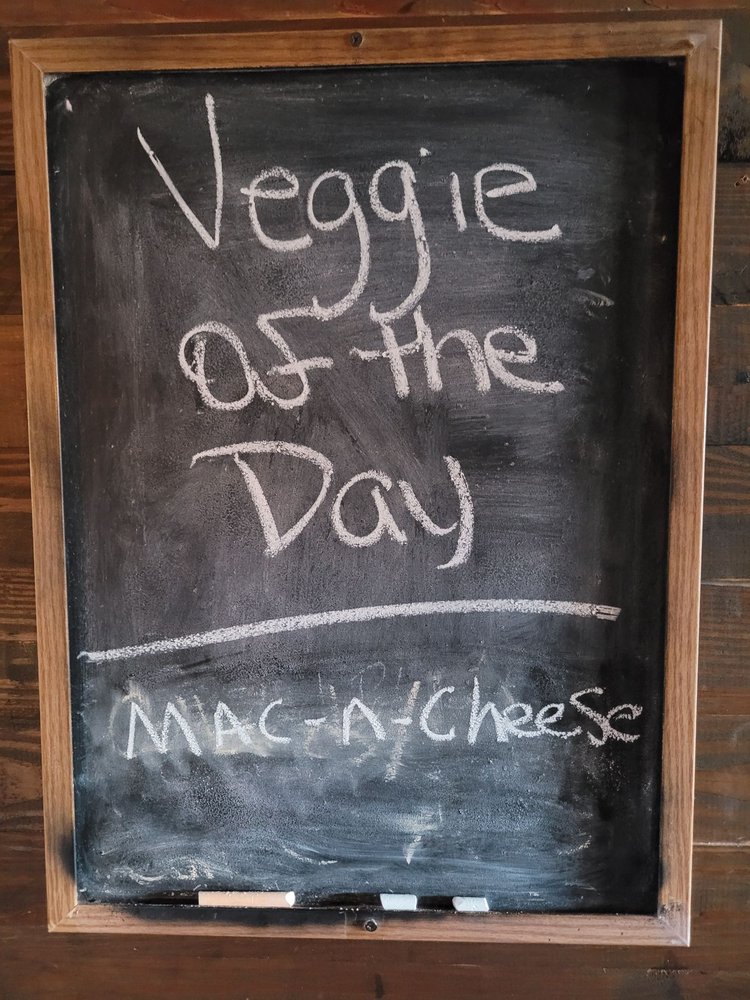 Veggie
of the
Day
MAC-n-Cheese